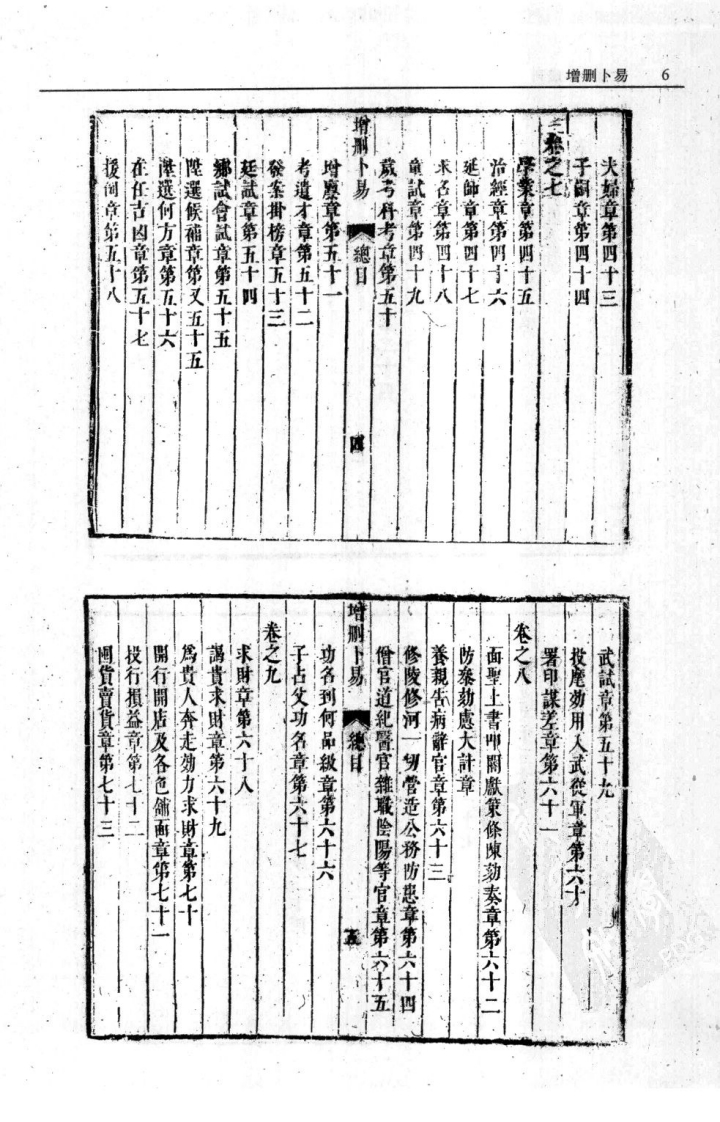 增刪卜易 6
夫婦章第四十三
子嗣章第四十四
卷之七
學業章第四十五
治經章第四十六
延師章第四十七
求名章第四十八
童試章第四十九
歲考科考章第五十
增刪卜易 總目 四
增廩章第五十一
考遺才章第五十二
發案掛榜章五十三
廷試章第五十四
鄉試會試章第五十五
陞選候補章第又五十五
陞選何方章第五十六
在任吉凶章第五十七
援例章第五十八
武試章第五十九
投麾効用入武從軍章第六十
署印謀差章第六十一
卷之八
面聖上書叩閽獻策條陳劾奏章第六十二
防叅劾慮大計章
養親告病辭官章第六十三
修陵修河一切營造公務防患章第六十四
僧官道紀醫官雜職陰陽等官章第六十五
增刪卜易 總目 五
功名到何品級章第六十六
子占父功名章第六十七
卷之九
求財章第六十八
謁貴求財章第六十九
爲貴人奔走効力求財章第七十
開行開店及各色鋪面章第七十一
投行損益章第七十二
囤貨賣貨章第七十三